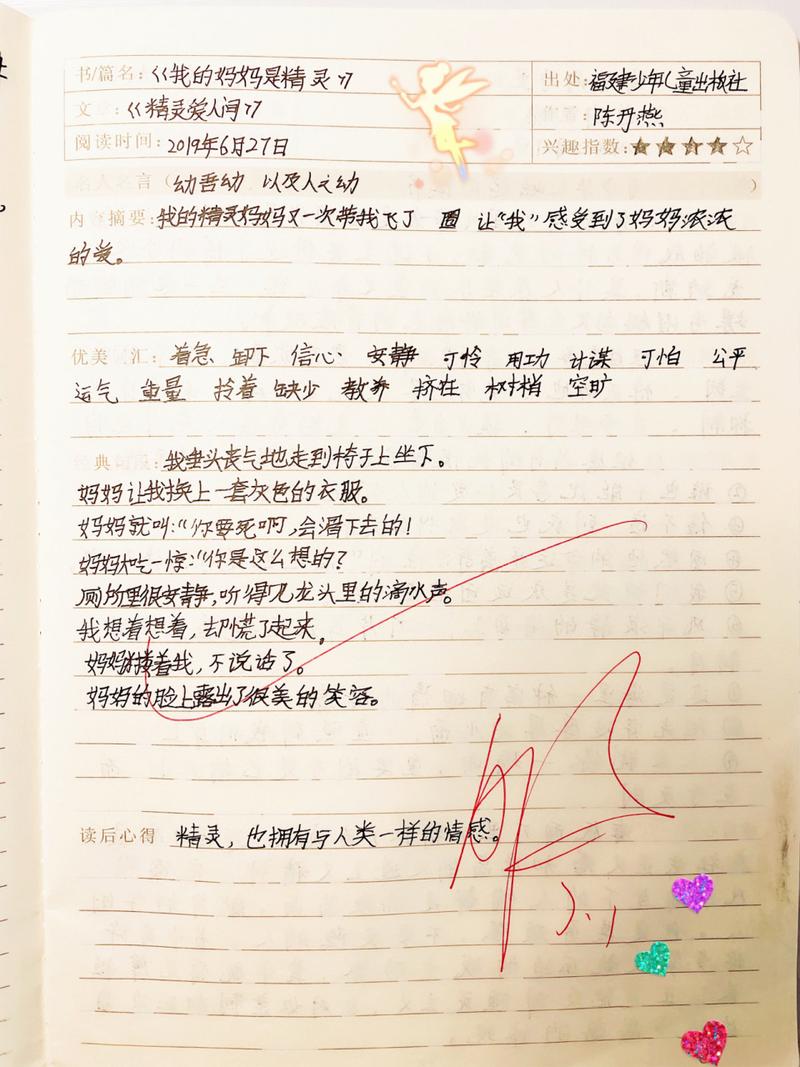 书/篇名：《我的妈妈是精灵》 出处：福建少年儿童出版社
文 章：《精灵爱人间》 陈丹燕
阅读时间：2019年6月27日 兴趣指数：★★★★☆
名人名言（幼吾幼 以及人之幼）
内容摘要：我的精灵妈妈又一次带我飞了 圈 让“我”感受到了妈妈浓浓
的爱。
优美 汇：着急 卸下 信心 安静 可怜 用功 计谋 可怕 公平
运气 重量 拎着 缺少 教养 挤在 树梢 空旷
经典句段：我垂头丧气地走到椅子上坐下。
妈妈让我换上一套灰色的衣服。
妈妈就叫：“你要死啊，会滑下去的！
妈妈大吃一惊：“你是这么想的？
厕所里很安静，听得见龙头里的滴水声。
我想着想着，却慌了起来。
妈妈搂着我，不说话了。
妈妈的脸上露出了很美的笑容。
读后心得 精灵，也拥有与人类一样的情感。
阅
7.1